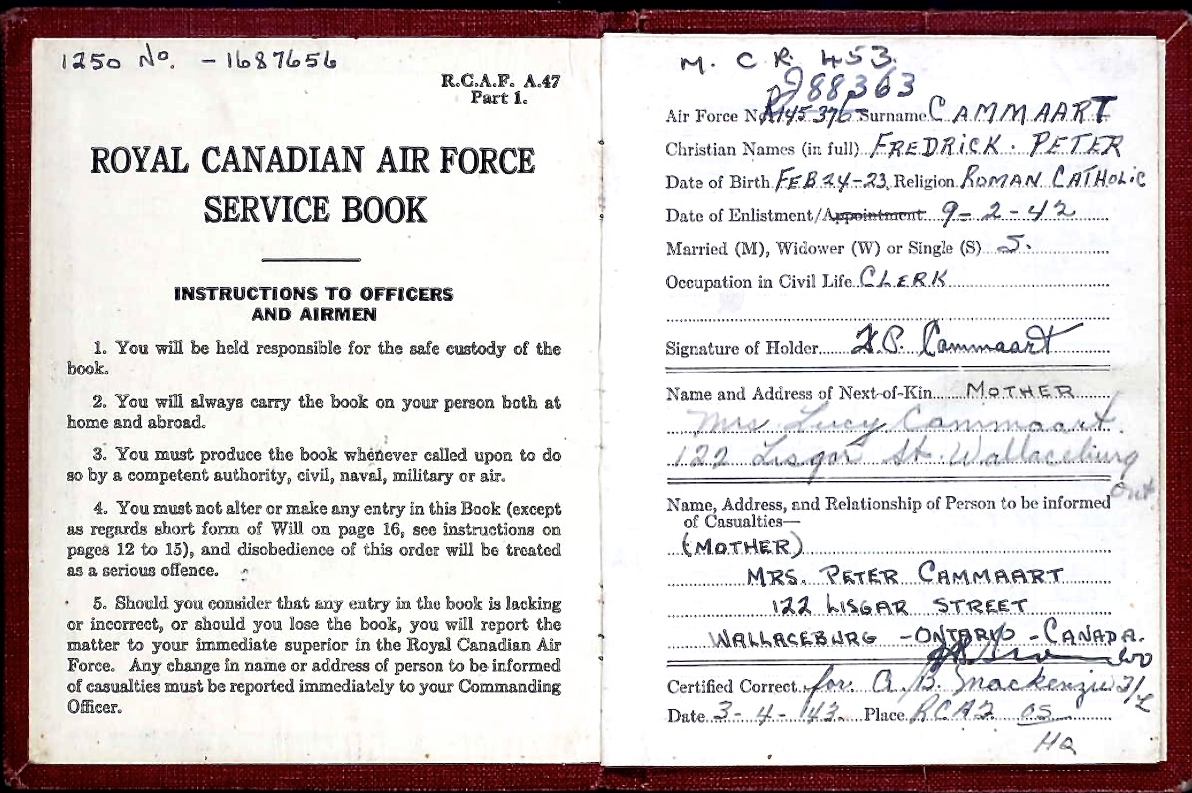 1250 No. - 1687656
R.C.A.F. A.47
Part 1.
ROYAL CANADIAN AIR FORCE
SERVICE BOOK
INSTRUCTIONS TO OFFICERS
AND AIRMEN
1. You will be held responsible for the safe custody of the
book.
2. You will always carry the book on your person both at
home and abroad.
3. You must produce the book whenever called upon to do
so by a competent authority, civil, naval, military or air.
4. You must not alter or make any entry in this Book (except
as regards short form of Will on page 16, see instructions on
pages 12 to 15), and disobedience of this order will be treated
as a serious offence.
5. Should you consider that any entry in the book is lacking
or incorrect, or should you lose the book, you will report the
matter to your immediate superior in the Royal Canadian Air
Force. Any change in name or address of person to be informed
of casualties must be reported immediately to your Commanding
Officer.
M. C. R. 453.
J88363
Air Force No. R145376 Surname CAMMAART
Christian Names (in full) FREDRICK. PETER
Date of Birth FEB 24-23 Religion ROMAN CATHOLIC
Date of Enlistment/Appointment 9-2-42
Married (M), Widower (W) or Single (S) S.
Occupation in Civil Life CLERK
Signature of Holder F.P. Cammaart
Name and Address of Next-of-Kin MOTHER
Mrs Lucy Cammaart.
122 Lisgar St. Wallaceburg
Ont
Name, Address, and Relationship of Person to be informed
of Casualties—
(MOTHER)
MRS. PETER CAMMAART
122 LISGAR STREET
WALLACEBURG - ONTARIO - CANADA.
Certified Correct for: A. B. Mackenzie F/L
Date 3-4-43. Place RCAF OS
HQ